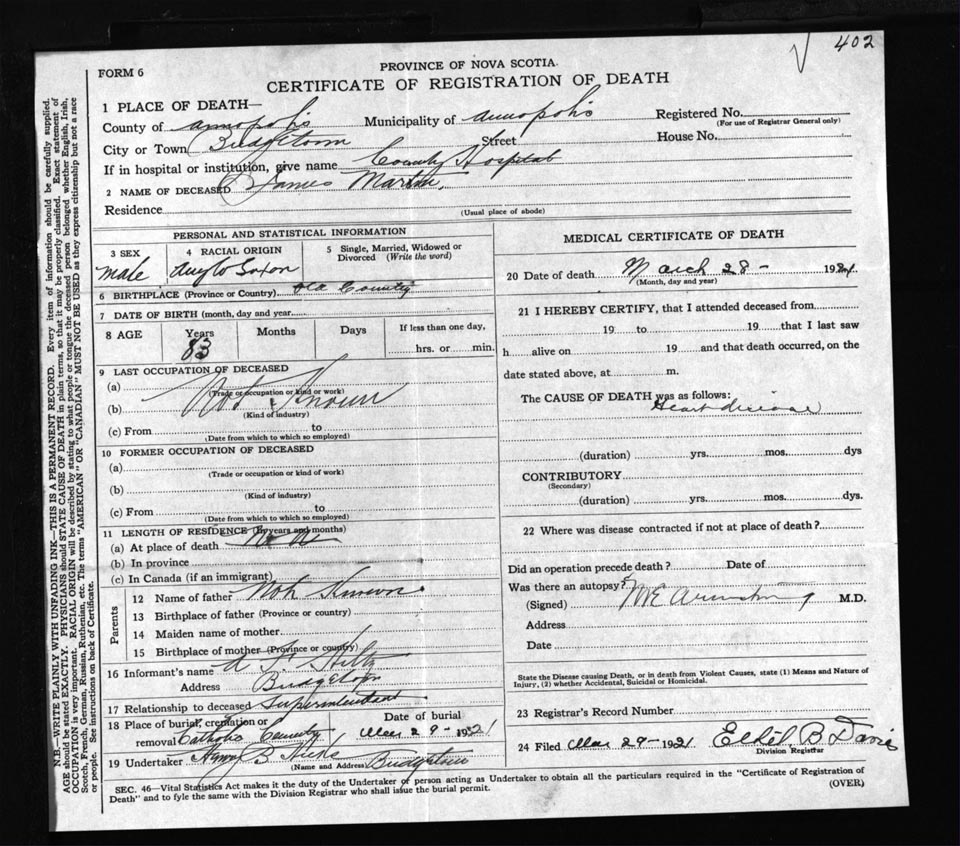 402
FORM 6
PROVINCE OF NOVA SCOTIA.
CERTIFICATE OF REGISTRATION OF DEATH
1 PLACE OF DEATH—
County of Annopolis Municipality of Annopolis Registered No.
(For use of Registrar General only)
City or Town Bridgetown Street House No.
If in hospital or institution, give name County Hospital
2 NAME OF DECEASED James Martin,
Residence
(Usual place of abode)
PERSONAL AND STATISTICAL INFORMATION
3 SEX 4 RACIAL ORIGIN 5 Single, Married, Widowed or Divorced (Write the word)
male Anglo Saxon
6 BIRTHPLACE (Province or County) Old County
7 DATE OF BIRTH (month, day and year)
8 AGE Years Months Days If less than one day,
83 hrs. or min.
9 LAST OCCUPATION OF DECEASED
(a)
(Trade or occupation or kind or work)
(b) Not Known
(Kind of industry)
(c) From to
(Date from which to which so employed)
10 FORMER OCCUPATION OF DECEASED
(a)
(Trade or occupation or kind of work)
(b)
(Kind of industry)
(c) From to
(Date from which to which so employed)
11 LENGTH OF RESIDENCE (In years and months)
(a) At place of death
(b) In province
(c) In Canada (if an immigrant)
Parents
12 Name of father Not Known
13 Birthplace of father (Province or country)
14 Maiden name of mother
15 Birthplace of mother (Province or country)
16 Informant's name A F Hiltz
Address Bridgetown
17 Relationship to deceased Superintendent
18 Place of burial, cremation or removal Catholic County Date of burial Mar 29-1921
19 Undertaker B Hicks Bridgetown
(Name and Address)
MEDICAL CERTIFICATE OF DEATH
20 Date of death March 28- 1921
(Month, day and year)
21 I HEREBY CERTIFY, that I attended deceased from
19 to 19 that I last saw
h alive on 19 and that death occurred, on the
date stated above, at m.
The CAUSE OF DEATH was as follows:
Heart disease
(duration) yrs. mos. dys
CONTRIBUTORY
(Secondary)
(duration) yrs. mos. dys.
22 Where was disease contracted if not at place of death?
Did an operation precede death? Date of
Was there an autopsy?
(Signed) M E Armstrong M.D.
Address
Date
State the Disease causing Death, or in death from Violent Causes, state (1) Means and Nature of
Injury, (2) whether Accidental, Suicidal or Homicidal.
23 Registrar's Record Number
24 Filed Mar 29-1921 Ethel B Davis
Division Registrar
SEC. 46—Vital Statistics Act makes it the duty of the Undertaker or person acting as Undertaker to obtain all the particulars required in the "Certificate of Registration of
Death" and to fyle the same with the Division Registrar who shall issue the burial permit.
(OVER)
N.B.—WRITE PLAINLY WITH UNFADING INK—THIS IS A PERMANENT RECORD. Every item of information should be carefully supplied.
AGE should be stated EXACTLY. PHYSICIANS should STATE CAUSE OF DEATH in plain terms, so that it may be properly classified. Exact statement of
OCCUPATION is very important. RACIAL ORIGIN will be described by stating to what people or tongue the deceased person belonged whether English, Irish,
Scotch, French, German, Russian, Ruthenian, etc. The terms "AMERICAN" OR "CANADIAN" MUST NOT BE USED as they express citizenship but not a race
or people. See instructions on back of Certificate.